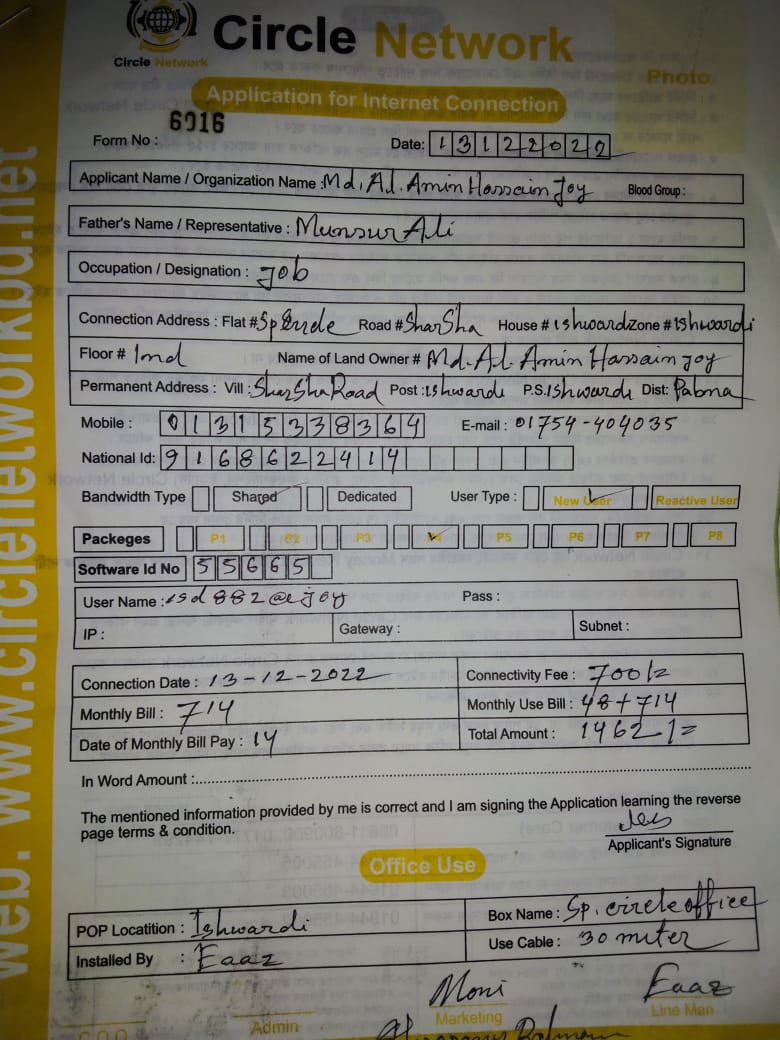 Circle Network
Circle Network
Photo
Application for Internet Connection
6016
Form No :
Date: 13122022
Applicant Name / Organization Name : Md. Al. Amin Hossain Joy Blood Group :
Father's Name / Representative : Munsur Ali
Occupation / Designation : Job
Connection Address : Flat # Road # SharSha House # Ishwardi Zone # Ishwardi
Floor # Ind Name of Land Owner # Md. Al. Amin Hassain Joy
Permanent Address : Vill : SharSha Road Post : Ishwardi P.S. Ishwardi Dist: Pabna
Mobile : 01315338364 E-mail : 01754-404035
National Id: 9168622414
Bandwidth Type Shared Dedicated User Type : New User Reactive User
Packeges P1 P2 P3 P5 P6 P7 P8
Software Id No 55665
User Name : isd882@ejoy Pass :
IP : Gateway : Subnet :
Connection Date : 13-12-2022 Connectivity Fee : 700/=
Monthly Bill : 714 Monthly Use Bill : 48+714
Date of Monthly Bill Pay : 14 Total Amount : 1462/=
In Word Amount :
The mentioned information provided by me is correct and I am signing the Application learning the reverse
page terms & condition.
Applicant's Signature
Office Use
POP Locatition : Ishwardi Box Name : Sp. circle office
Installed By : Eaaz Use Cable : 30 miter
Moni Eaaz
Admin Marketing Line Man
web: www.circlenetworkbd.net